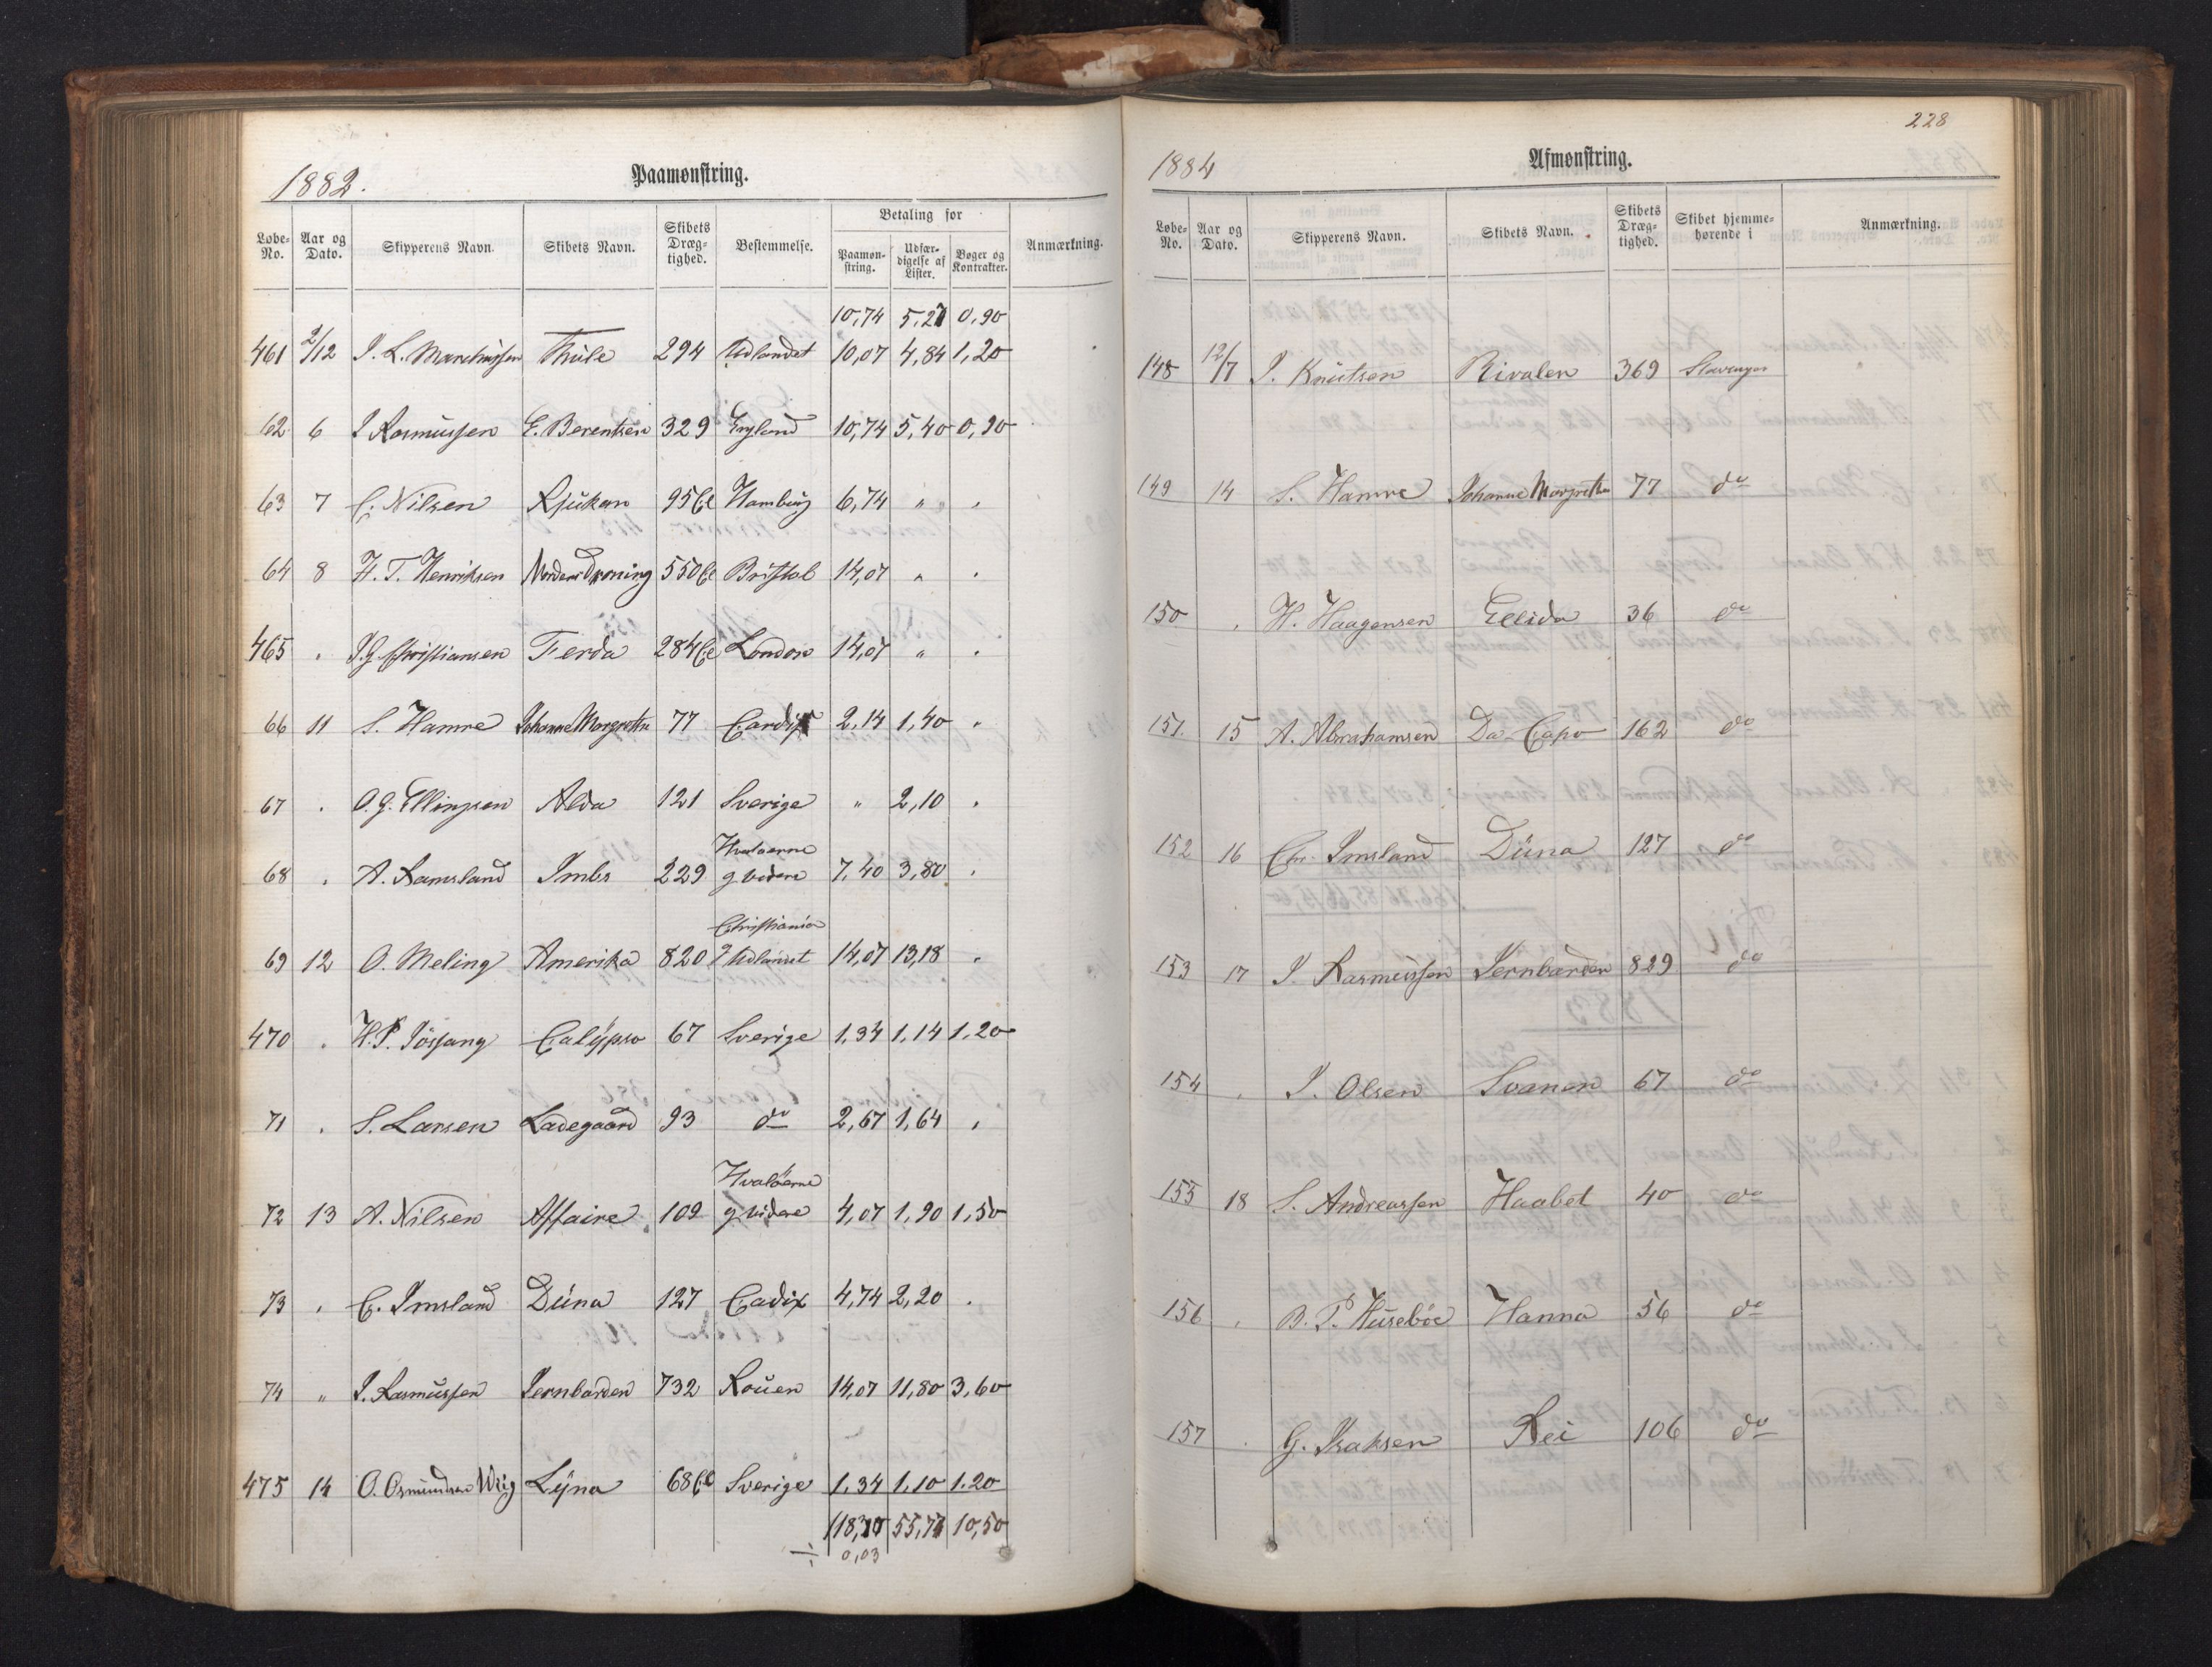 1882.
Paamønstring.
Løbe-No. Aar og Dato. Skipperens Navn. Skibets Navn. Skibets Dræg-tighed. Bestemmelse. Betaling for Paamøn-string. Udfær-digelse af Lister. Bøger og Kontrakter. Anmærkning.
10,74 5,27 0,90
461 2/12 I. L. Marchussen Thule 294 Udlandet 10,07 4,84 1,20
62 6 I Rasmussen E. Berentsen 329 England 10,74 5,40 0,90
63 7 C. Nilsen Rjukan 95 Cl Hamburg 6,74 " " "
64 8 H. T. Henriksen Nordens Dronning 550 Cl Bristol 14,07 " "
465 " I. G. Christiansen Ferda 284 Cl London 14,07 " "
66 11 S. Hamre Johanne Margrethe 77 Cardiff 2,14 1,40 "
67 " O. G. Ellingsen Alda 121 Sverige " 2,10 "
Hvaløerne
68 " A. Ramsland Imbs 229 g. videre 7,40 3,80 "
Christiania
69 12 O. Meling Amerika 820 & Udlandet 14,07 13,18 "
470 " H. P. Jøssang Calypso 67 Sverige 1,34 1,14 1,20
71 " S. Larsen Ladegaard 93 do 2,67 1,64 "
Hvaløerne
72 13 A. Nilsen Affaire 109 g. videre 4,07 1,90 1,50
73 " C. Imsland Düna 127 Cadix 4,74 2,20 "
74 " I. Rasmussen Jernbarden 732 Rouen 14,07 11,80 3,60
475 14 O. Osmundsen Wiig Lyna 68 Cl Sverige 1.34 1,10 1.20
55,77 10,50
÷ 0,03
228
1884
Afmønstring.
Løbe-No. Aar og Dato. Skipperens Navn. Skibets Navn. Skibets Dræg-tighed. Skibet hjemme-hørende i Anmærkning.
148 12/7 I. Knutsen Rivalen 369 Stavanger
149 14 S. Hamre Johanne Margrethe 77 do
150 " H. Haagensen Ellida 36 do
151. 15 A. Abrahamsen Da-Capo 162 do
152 16 Chr. Imsland Düna 127 do
153 17 I. Rasmussen Jernbarden 829 do
154 " I. Olsen Svanen 67 do
155 18 S. Andreassen Haabet 40 do
156 " B. P. Husebøe Hanna 56 do
157 " G. Isaksen Rei 106 do